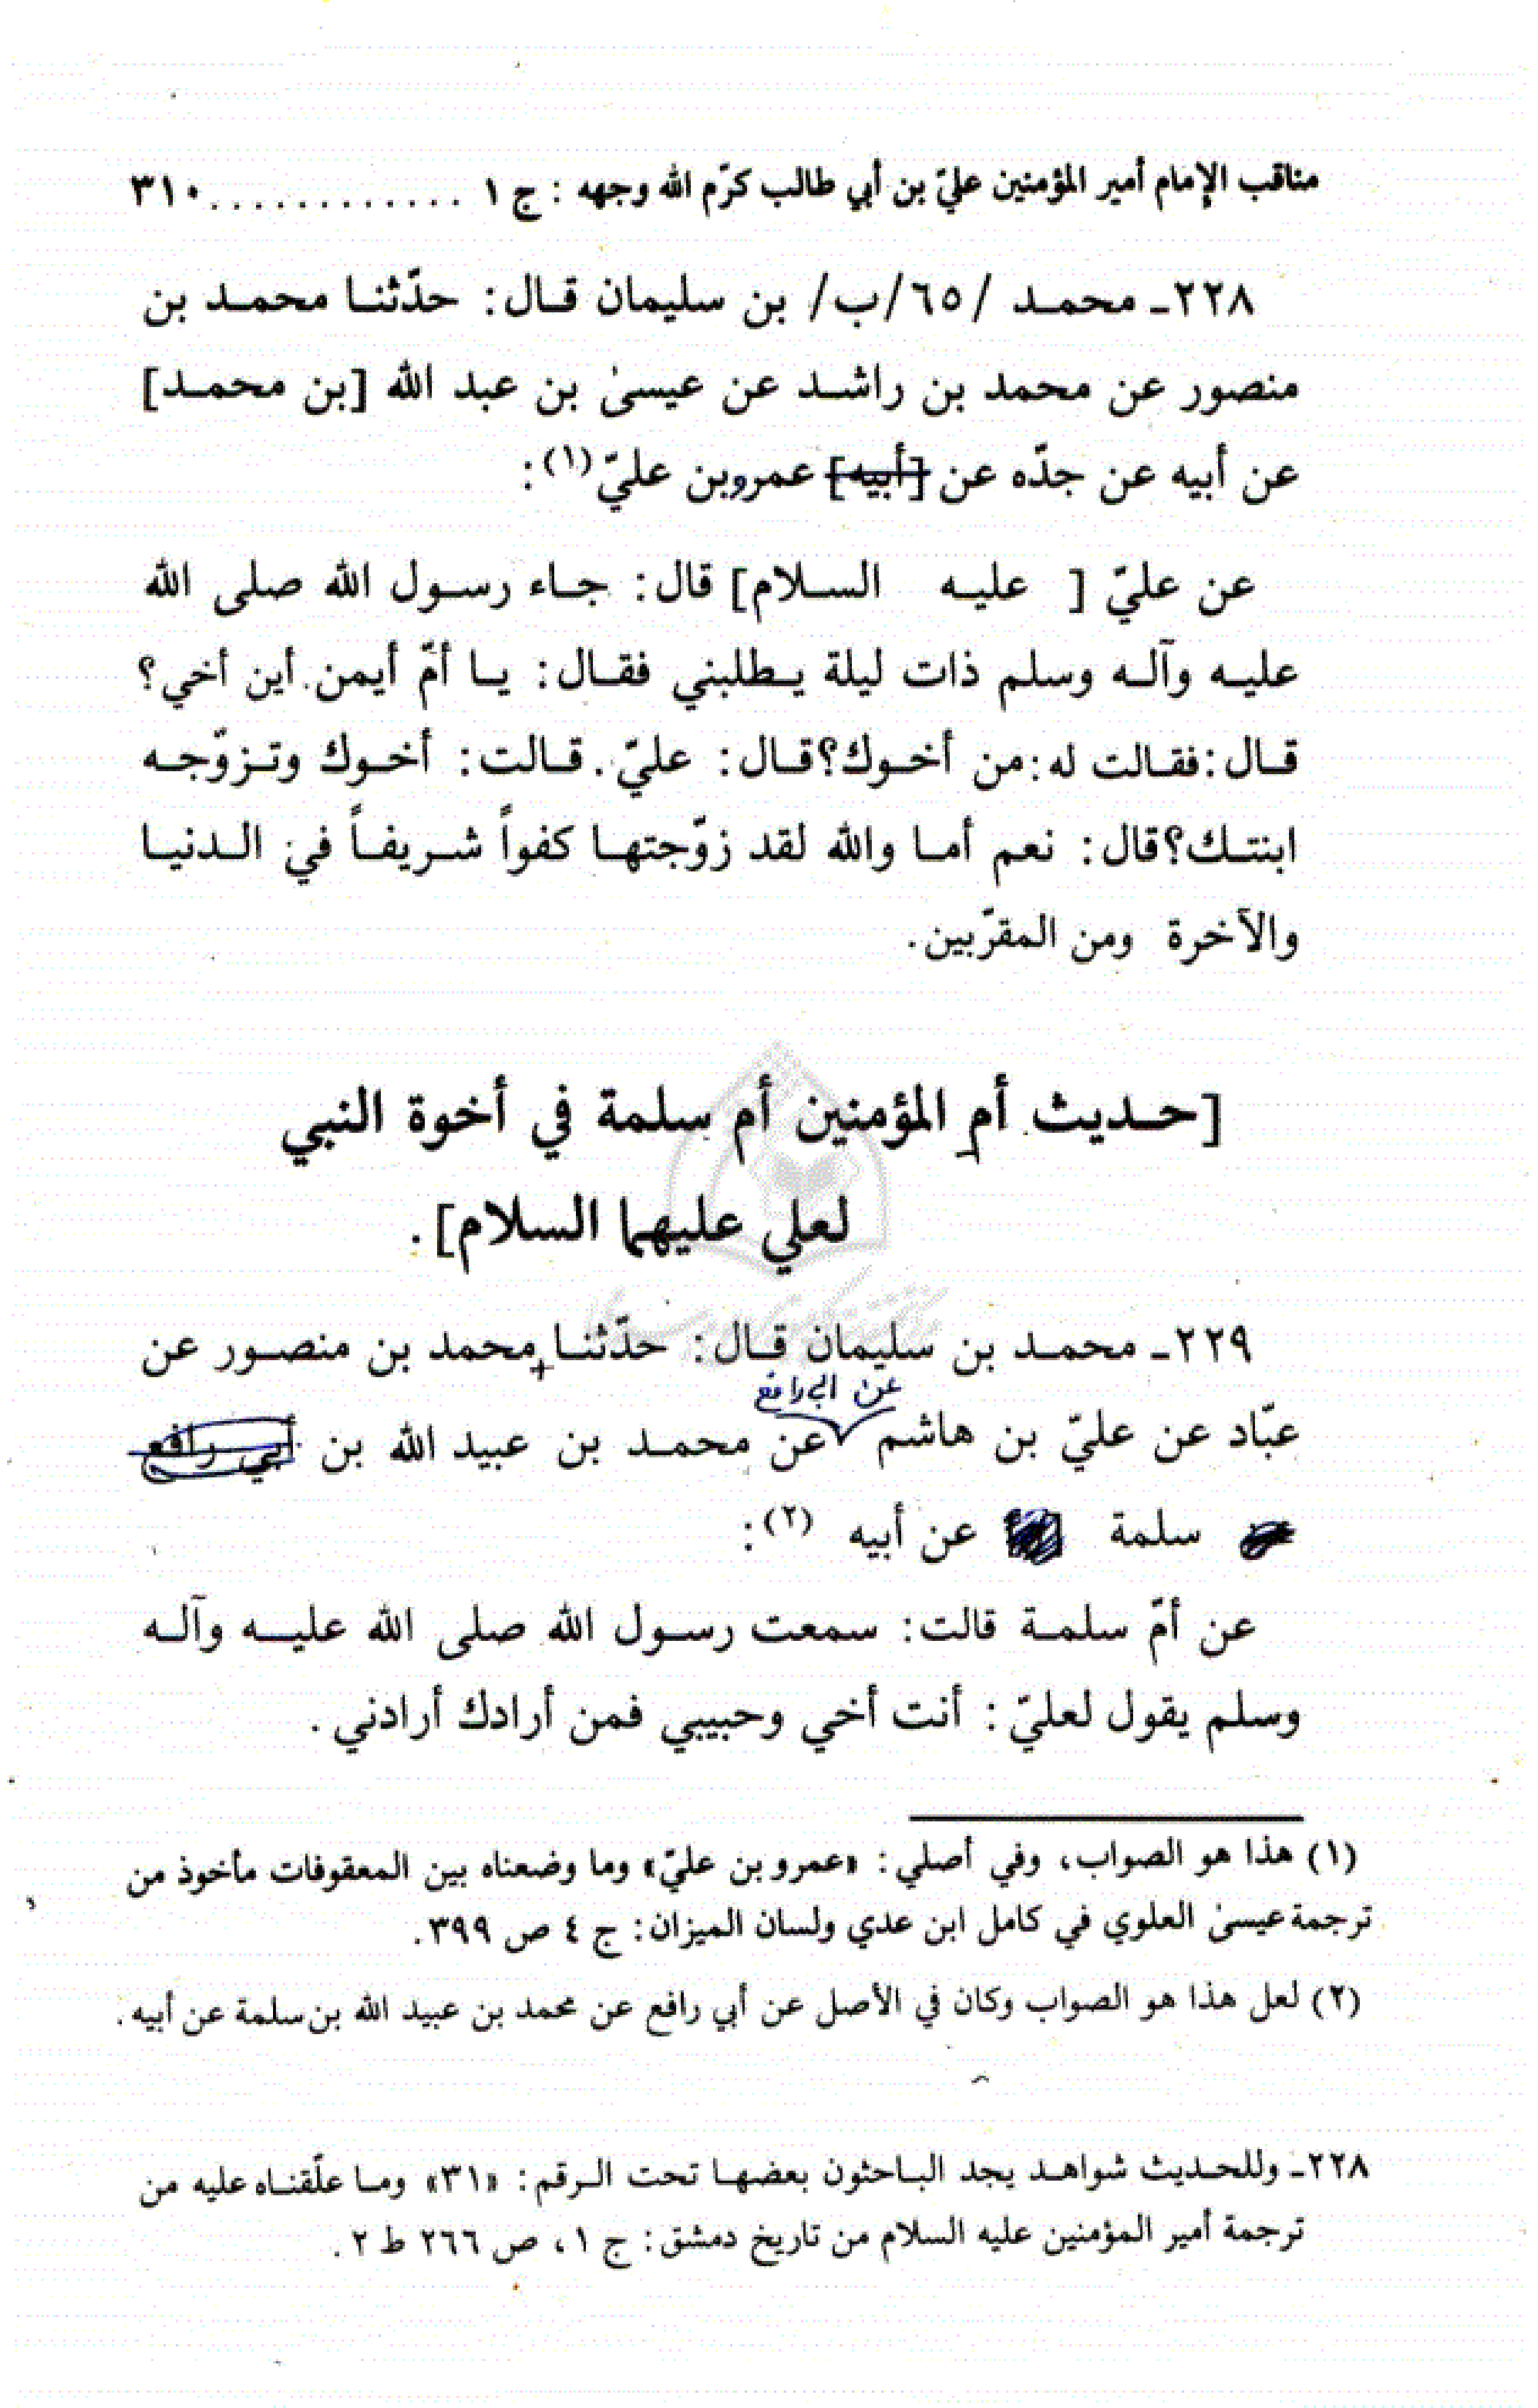 مناقب الإمام أمير المؤمنين عليّ بن أبي طالب كرّم الله وجهه : ج ١ ............. ٣١٠
٢٢٨ـ محمد /٦٥/ب/ بن سليمان قال: حدّثنا محمد بن
منصور عن محمد بن راشد عن عيسىٰ بن عبد الله [بن محمد]
عن أبيه عن جدّه عن [أبيه] عمرو بن عليّ (١):
عن عليّ [ عليه السلام] قال: جاء رسول الله صلى الله
عليه وآله وسلم ذات ليلة يطلبني فقال: يا أمّ أيمن أين أخي؟
قال: فقالت له: من أخوك؟ قال: عليّ. قالت: أخوك وتزوّجه
ابنتك؟ قال: نعم أما والله لقد زوّجتها كفواً شريفاً في الدنيا
والآخرة ومن المقرّبين.
[حديث أم المؤمنين أم سلمة في أخوة النبي
لعلي عليهما السلام].
٢٢٩ـ محمد بن سليمان قال: حدّثنا محمد بن منصور عن
عن ابي رافع
عبّاد عن عليّ بن هاشم عن محمد بن عبيد الله بن أبي رافع
سلمة عن أبيه (٢):
عن أمّ سلمة قالت: سمعت رسول الله صلى الله عليه وآله
وسلم يقول لعليّ: أنت أخي وحبيبي فمن أرادك أرادني.
(١) هذا هو الصواب، وفي أصلي: «عمرو بن عليّ» وما وضعناه بين المعقوفات مأخوذ من
ترجمة عيسىٰ العلوي في كامل ابن عدي ولسان الميزان: ج ٤ ص ٣٩٩.
(٢) لعل هذا هو الصواب وكان في الأصل عن أبي رافع عن محمد بن عبيد الله بن سلمة عن أبيه.
٢٢٨ـ وللحديث شواهد يجد الباحثون بعضها تحت الرقم: «٣١» وما علّقناه عليه من
ترجمة أمير المؤمنين عليه السلام من تاريخ دمشق: ج ١، ص ٢٦٦ ط ٢.